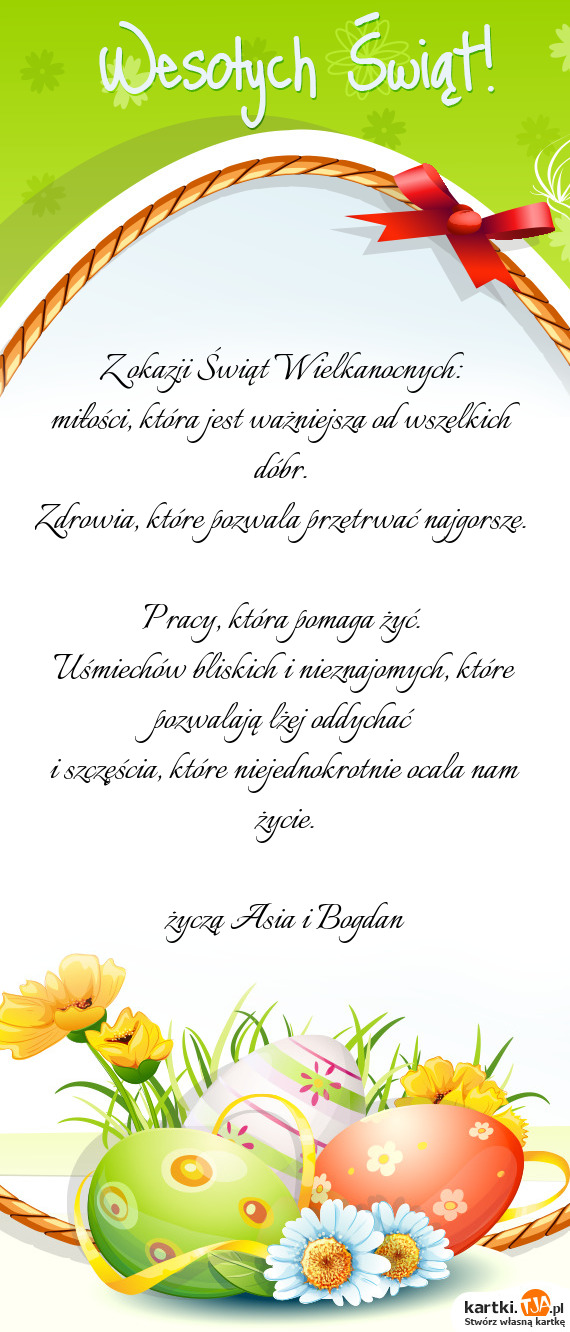 Wesołych Świąt!
Z okazji Świąt Wielkanocnych:
miłości, która jest ważniejsza od wszelkich
dóbr.
Zdrowia, które pozwala przetrwać najgorsze.
Pracy, która pomaga żyć.
Uśmiechów bliskich i nieznajomych, które
pozwalają lżej oddychać
i szczęścia, które niejednokrotnie ocala nam
życie.
życzą Asia i Bogdan
kartki.TJA.pl
Stwórz własną kartkę